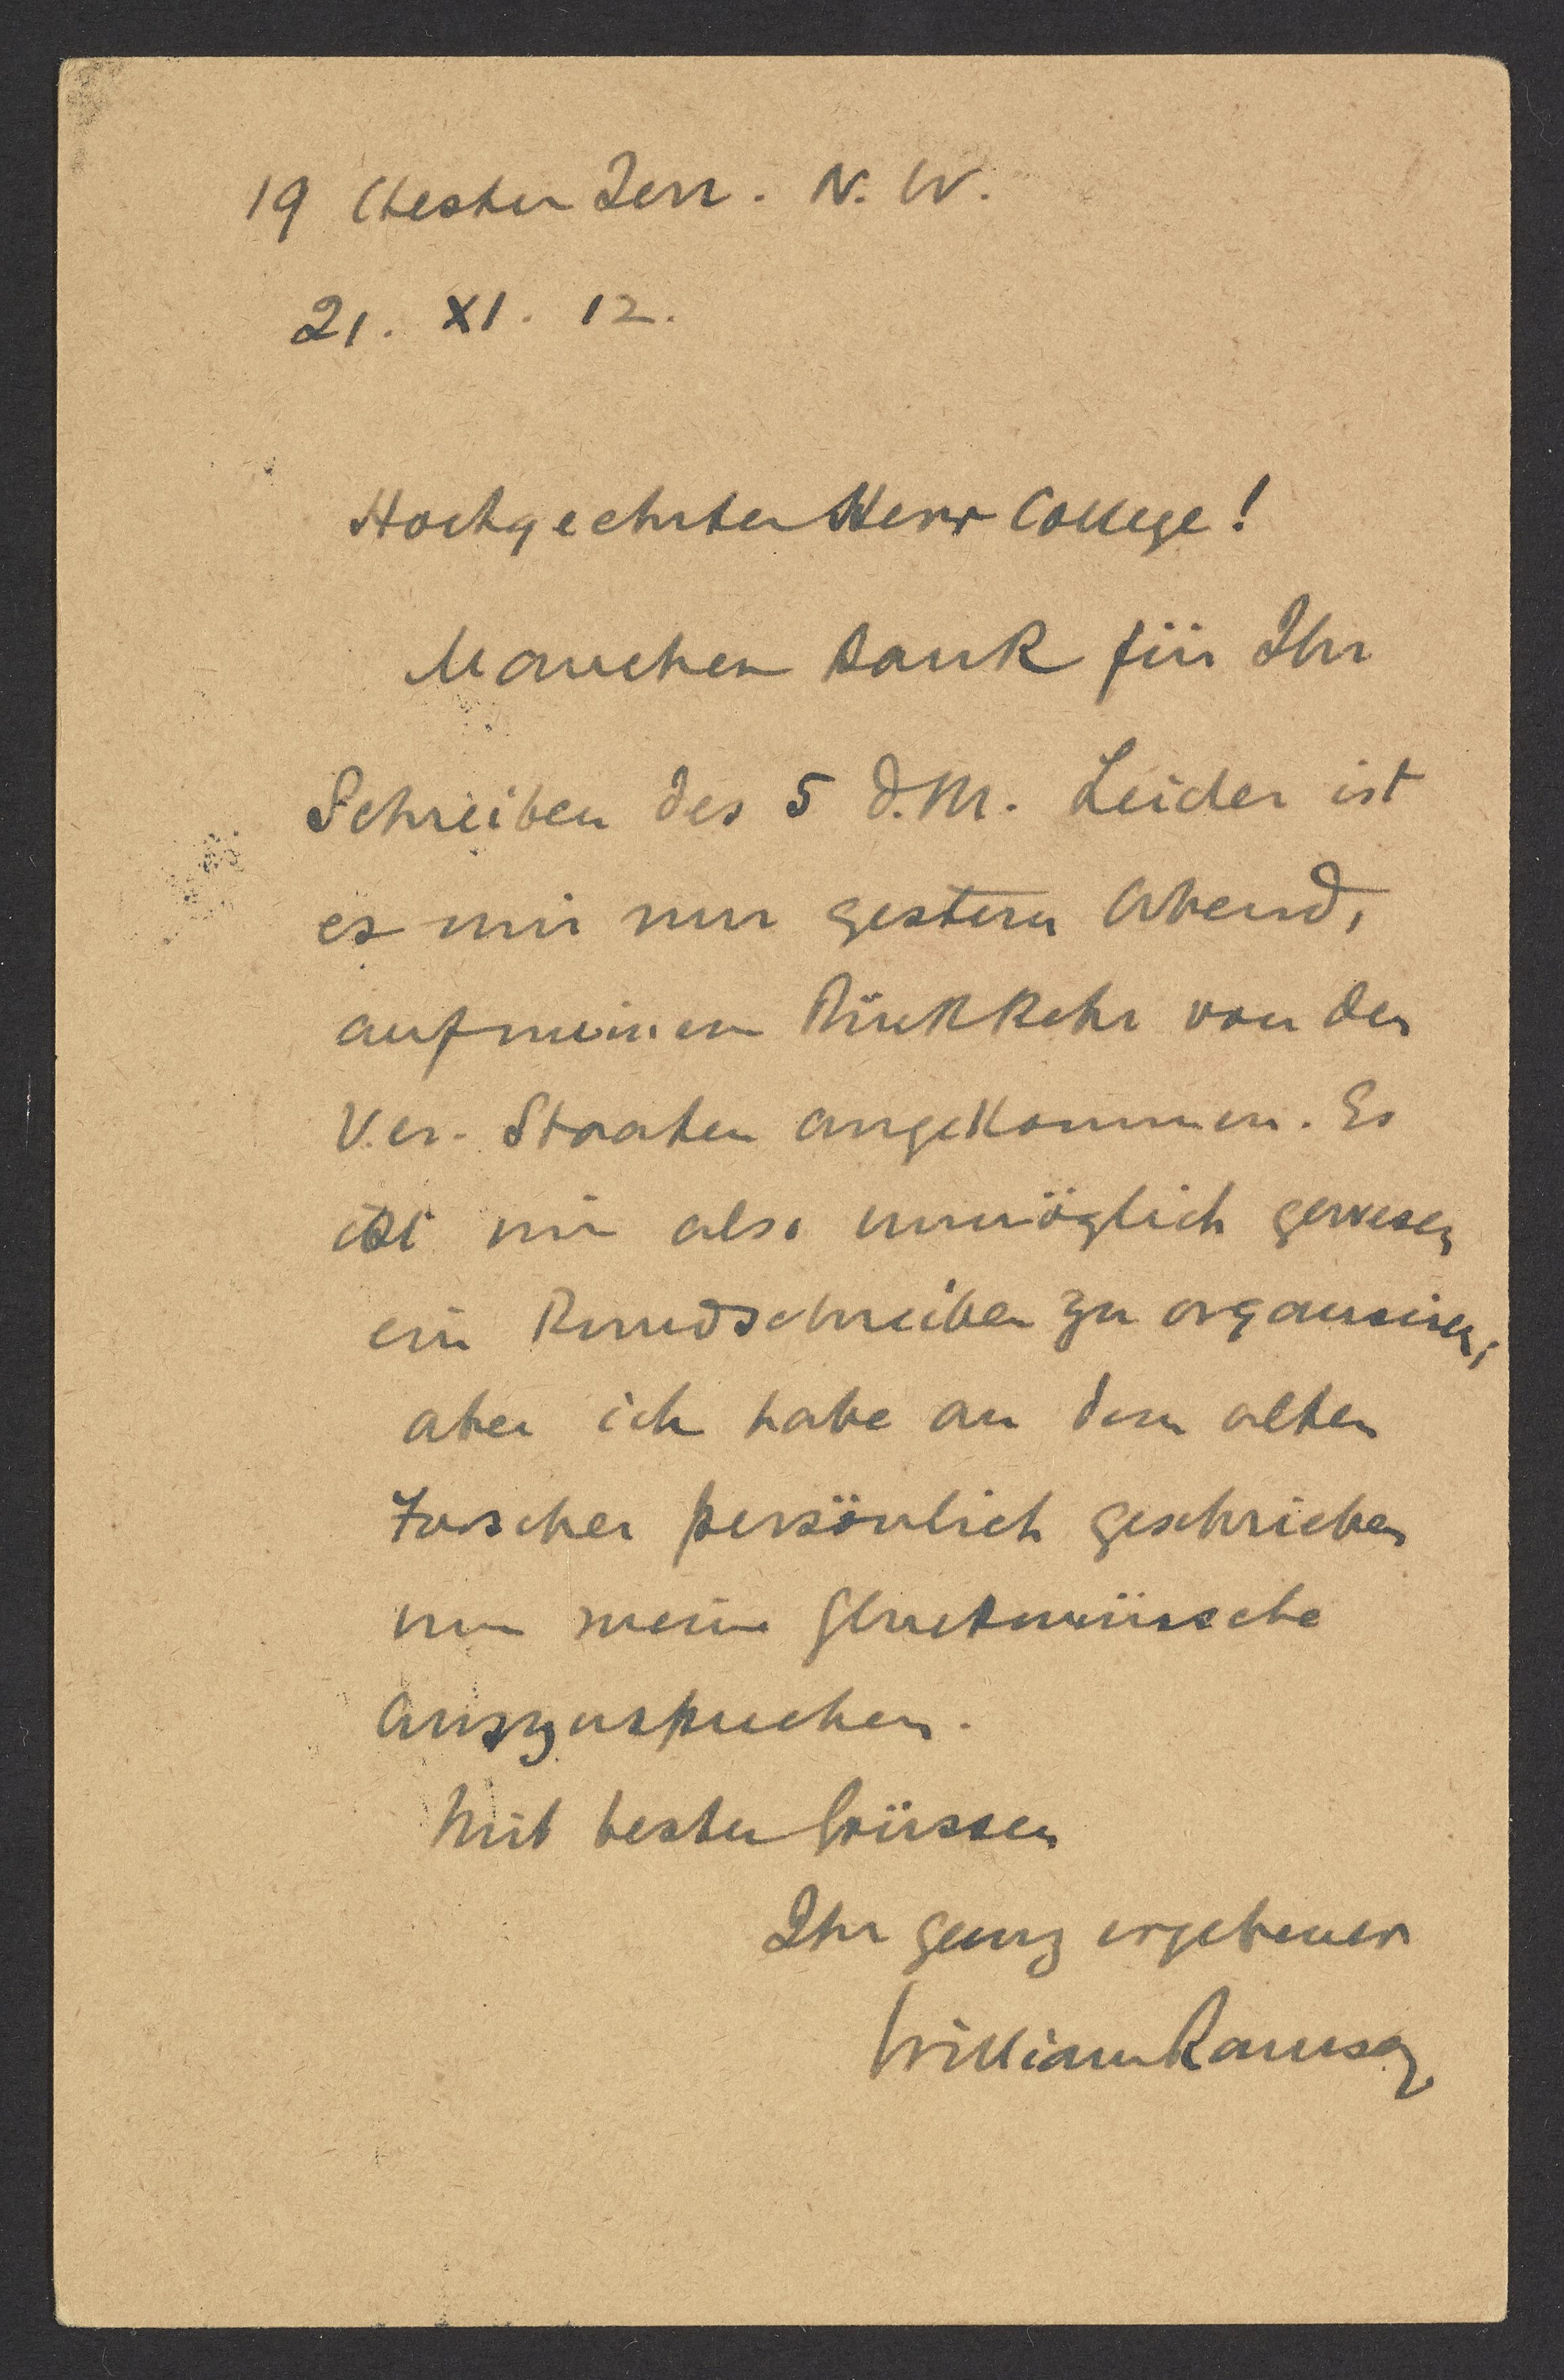 19 Chester Terr. N. W.
21. XI. 12.
Hochgeehrter Herr College!
Manchen Dank für Ihr
Schreiben des 5 d. M. Leider ist
es mir nur gestern Abend,
auf meinen Rückkehr von den
Ver. Staaten angekommen. Es
ist mir also unmöglich gewesen
ein Rundschreiben zu organisiren,
aber ich habe an dem alten
Forscher persönlich geschrieben
um meine Gluckwünsche
auszusprechen.
Mit besten Grüssen
Ihr ganz ergebener
William Ramsay